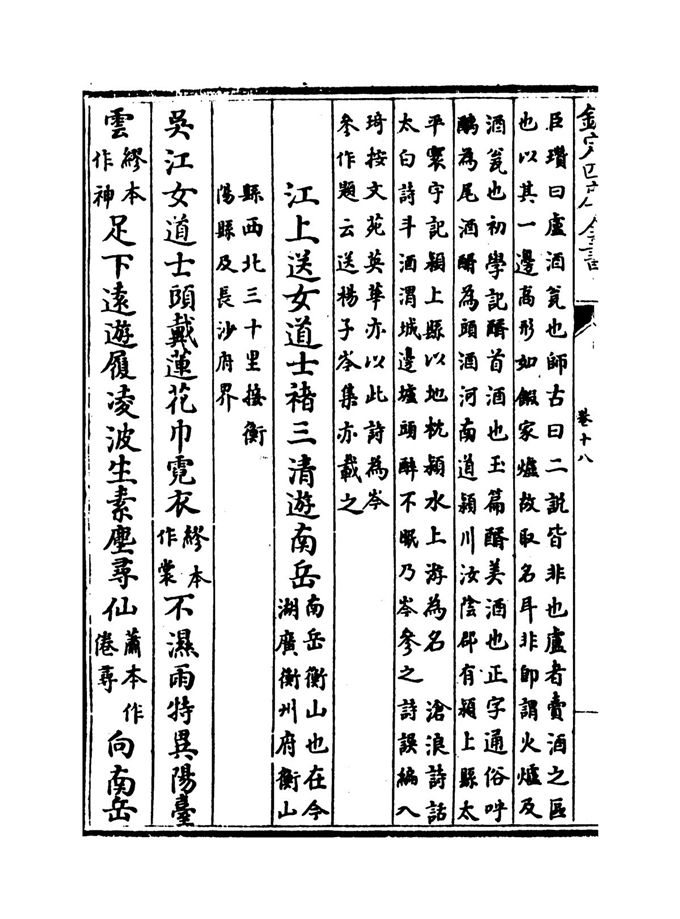 欽定四庫全書
卷十八
臣瓚曰盧酒瓮也師古曰二說皆非也盧者賣酒之區
也以其一邊高形如鍜家爐故取名耳非卽謂火爐及
酒瓮也初學記醑首酒也玉篇醑美酒也正字通俗呼
醨為尾酒醑為頭酒河南道潁川汝陰郡有潁上縣太
平寰宇記潁上縣以地枕潁水上游為名 滄浪詩話
太白詩斗酒渭城邊壚頭醉不眠乃岑參之詩誤編入
琦按文苑英華亦以此詩為岑
參作題云送楊子岑集亦載之
江上送女道士褚三清遊南岳南岳衡山也在今
湖廣衡州府衡山
縣西北三十里接衡
陽縣及長沙府界
吳江女道士頭戴蓮花巾霓衣繆本
作裳不濕雨特異陽臺
雲繆本
作神足下遠遊履凌波生素塵尋仙蕭本作
倦尋向南岳